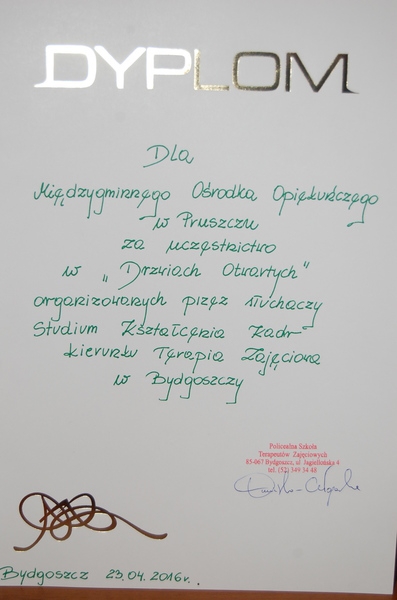 DYPLOM
Dla
Międzygminnego Ośrodka Opiekuńczego
w Pruszczu
za uczestnictwo
w „Drzwiach Otwartych"
organizowanych przez słuchaczy
Studium Kształcenia Kadr
kierunku Terapia Zajęciowa
w Bydgoszczy
Policealna Szkoła
Terapeutów Zajęciowych
85-067 Bydgoszcz, ul. Jagiellońska 4
tel. (52) 349 34 48
Bydgoszcz 23.04.2016r.